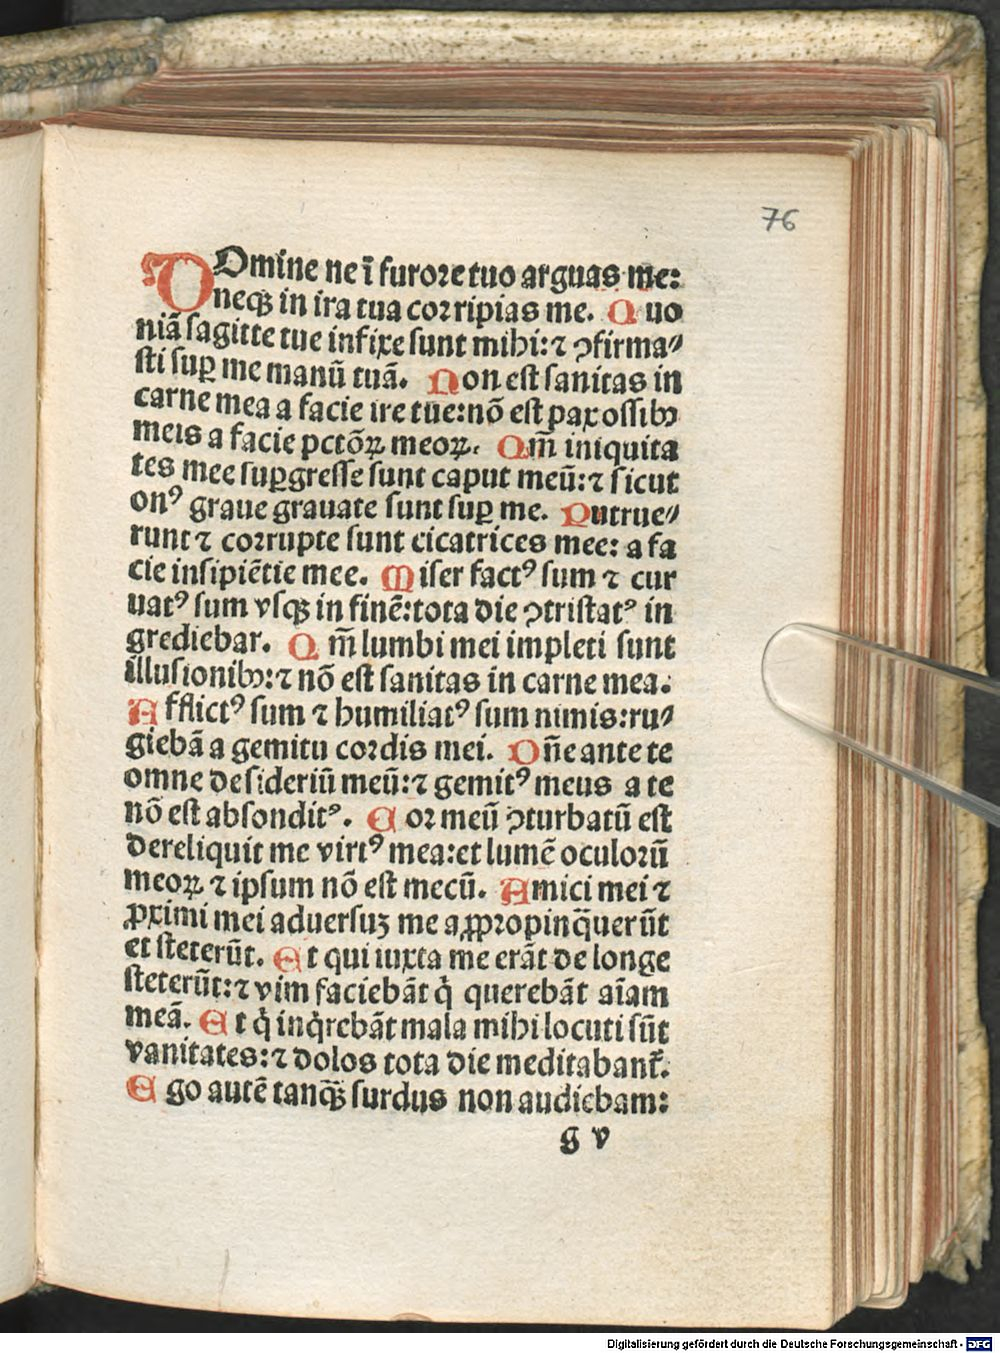 76
DOmine ne ī furore tuo arguas me:
neqꝫ in ira tua corripias me. Quo
niā sagitte tue infixe sunt mihi: ⁊ ꝯfirma⸗
sti suꝑ me manū tuā. Non est sanitas in
carne mea a facie ire tue: nō est pax ossibꝰ
meis a facie pctōꝝ meoꝝ. Qm̄ iniquita
tes mee suꝑgresse sunt caput meū: ⁊ sicut
onꝰ graue grauate sunt suꝑ me. Putrue⸗
runt ⁊ corrupte sunt cicatrices mee: a fa
cie insipiētie mee. Miser factꝰ sum ⁊ cur
uatꝰ sum vsqꝫ in finē: tota die ꝯtristatꝰ in
grediebar. Qm̄ lumbi mei impleti sunt
illusionibꝰ: ⁊ nō est sanitas in carne mea.
Afflictꝰ sum ⁊ humiliatꝰ sum nimis: ru⸗
giebā a gemitu cordis mei. Dn̄e ante te
omne desideriū meū: ⁊ gemitꝰ meus a te
nō est absonditꝰ. Cor meū ꝯturbatū est
dereliquit me virtꝰ mea: et lumē oculorū
meoꝝ ⁊ ipsum nō est mecū. Amici mei ⁊
ꝓximi mei aduersuꝫ me aꝓpropinq̄uerūt
et steterūt. Et qui iuxta me erāt de longe
steterūt: ⁊ vim faciebāt qͥ querebāt aīam
meā. Et qͥ inqͥrebāt mala mihi locuti sūt
vanitates: ⁊ dolos tota die meditabant᷑.
Ego autē tanqꝫ̄ surdus non audiebam:
g v
Digitalisierung gefördert durch die Deutsche Forschungsgemeinschaft - DFG